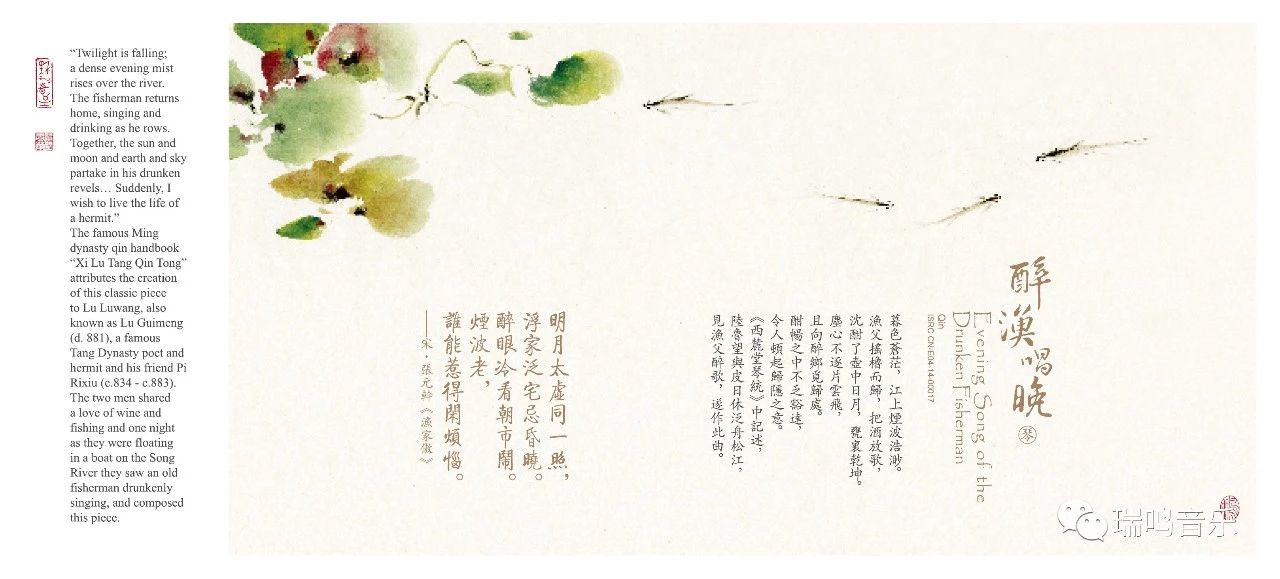 “Twilight is falling;
a dense evening mist
rises over the river.
The fisherman returns
home, singing and
drinking as he rows.
Together, the sun and
moon and earth and sky
partake in his drunken
revels… Suddenly, I
wish to live the life of
a hermit.”
The famous Ming
dynasty qin handbook
“Xi Lu Tang Qin Tong”
attributes the creation
of this classic piece
to Lu Luwang, also
known as Lu Guimeng
(d. 881), a famous
Tang Dynasty poet and
hermit and his friend Pi
Rixiu (c.834 - c.883).
The two men shared
a love of wine and
fishing and one night
as they were floating
in a boat on the Song
River they saw an old
fisherman drunkenly
singing, and composed
this piece.
醉漁唱晚
琴
Evening Song of the
Drunken Fisherman
Qin
ISRC CN-E04-14-00017
暮色蒼茫，江上煙波浩渺。
漁父搖櫓而歸，把酒放歌，
沈酣了壺中日月，甕裏乾坤。
塵心不逐片雲飛，
且向醉鄉覓歸處。
酣暢之中不乏豁達，
令人頓起歸隱之意。
《西麓堂琴統》中記述，
陸魯望與皮日休泛舟松江，
見漁父醉歌，遂作此曲。
明月太虛同一照，
浮家泛宅忘昏曉。
醉眼冷看朝市鬧。
煙波老，
誰能惹得閑煩惱。
——宋·張元幹《漁家傲》
瑞鸣音乐